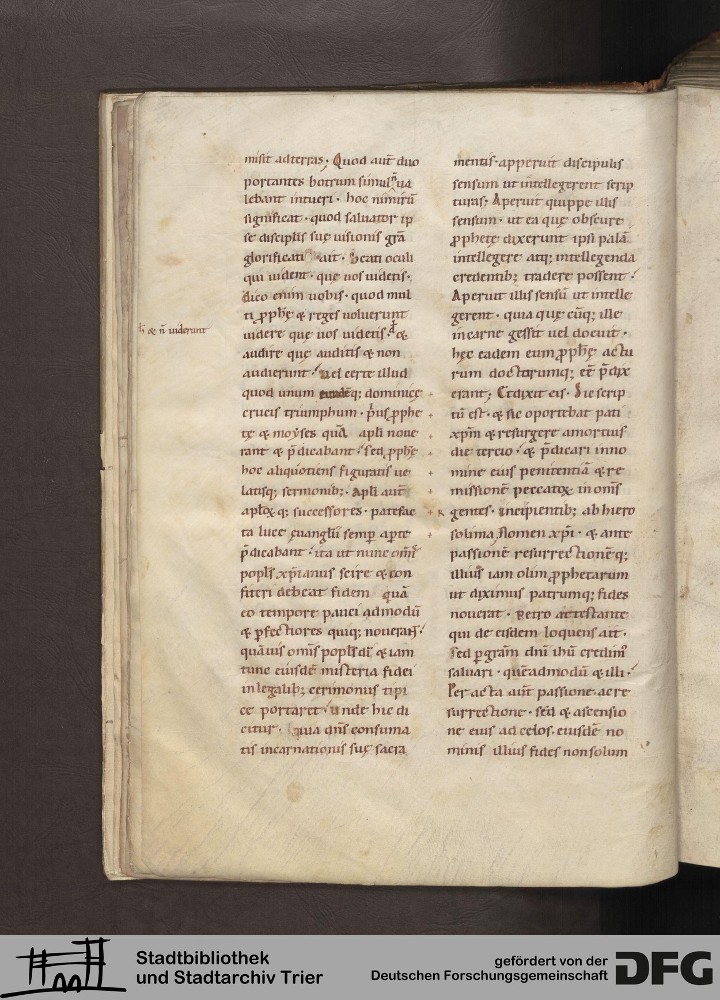 misit ad terras. Quod aut̄ duo
portantes botrum simul ua
lebant intueri. hoc nimirū
significat. quod saluator ip
se disciplis suę uisionis grā
glorificati ait. Beati oculi
qui uident. quę uos uidetis.
dico enim uobis. quod mul
ti ꝓphę & reges voluerunt
uidere quę uos uidetis. &
audire quę auditis & non
audierunt. Vel certe illud
quod unum q; dominicę
crucis triumphum. p̄us ꝓphe
tę & moẏses quā apli noue
rant & p̄dicabant. sed ꝓphę
hoc aliquotiens figuratis ue
latisq; sermonib;. Apli aut̄
aplōꝝq; successores. patefac
ta luce euanglii semp̄ apte
p̄dicabant. ita ut nunc om̄s
popls̄ xp̄ianus scire & con
fiteri debeat fidem quā
eo tempore pauci admodū
& ꝑfectiores quiq; nouerant.
quāuis om̄s popls̄ dī & iam
tunc eiusdē misteria fidei
in legalib; cerimoniis tipi
ce portaret. Vnde hic di
citur. quia dn̄s consuma
tis incarnationis suę sacra
h̄ & n̄ uiderunt
mentis. apperuit discipulis
sensum ut intellegerent scrip
turas; Aperuit quippe illis
sensum. ut ea quę obscure
ꝓphetę dixerunt ipsi palā
intellegere atq; intellegenda
credentib; tradere possent.
Aperuit illis sensū ut intelle
gerent. quia quę cūq; ille
in carne gessit uel docuit.
hęc eadem eum ꝓphę actu
rum doctorumq; eē p̄dix
erant; Et dixit eis. Sic scrip
tū est. & sic oportebat pati
xp̄m & resurgere a mortuis
die tercio. & p̄dicari in no
mine eius penitentiā & re
missionē peccatoꝝ in om̄s
gentes. incipientib; ab hiero
solima; Nomen xp̄i. & ante
passionē resurrectionēq;
illius iam olim ꝓphetarum
ut diximus patrumq; fides
nouerat. Petro attestante
qui de eisdem loquens ait.
Sed ꝑ grām dn̄i ihū credim̄
saluari. quēadmodū & illi.
Per acta aut̄ passione. ac re
surrectione. sed & ascensio
ne eius ad celos. eiusdē no
minis illius fides non solum
Stadtbibliothek
und Stadtarchiv Trier
gefördert von der
Deutschen Forschungsgemeinschaft
DFG